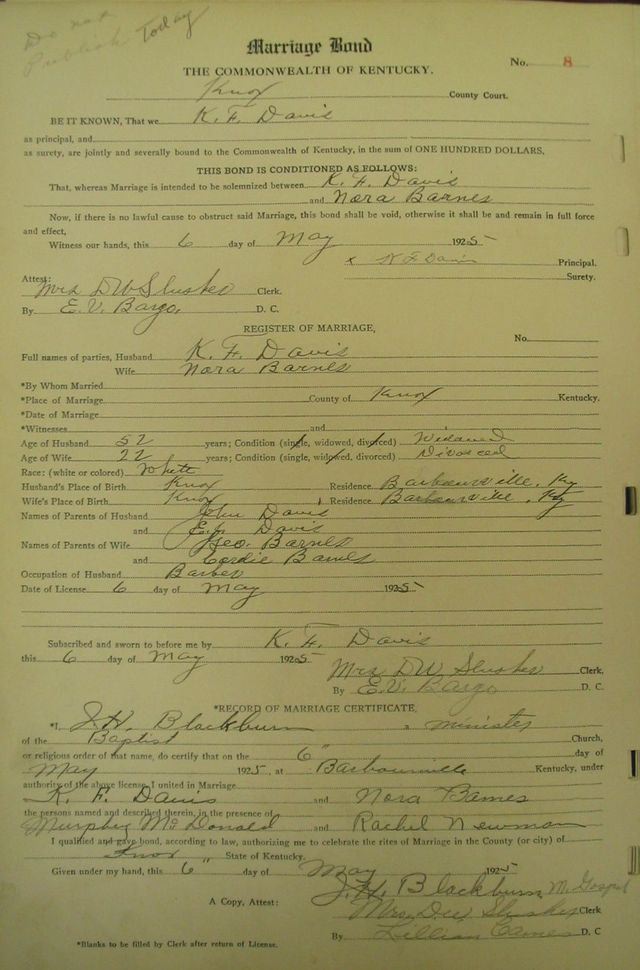 Do not
Publish Today
Marriage Bond
THE COMMONWEALTH OF KENTUCKY.
No. 8
Knox County Court.
BE IT KNOWN, That we K. F. Davis
as principal, and
as surety, are jointly and severally bound to the Commonwealth of Kentucky, in the sum of ONE HUNDRED DOLLARS.
THIS BOND IS CONDITIONED AS FOLLOWS:
That, whereas Marriage is intended to be solemnized between K. F. Davis
and Nora Barnes
Now, if there is no lawful cause to obstruct said Marriage, this bond shall be void, otherwise it shall be and remain in full force
and effect,
Witness our hands, this 6 day of May 1925
x K F Davis Principal.
Surety.
Attest:
Mrs D W Slusher Clerk.
By E. V. Bargo, D. C.
REGISTER OF MARRIAGE,
No.
Full names of parties, Husband K. F. Davis
Wife Nora Barnes
*By Whom Married
*Place of Marriage County of Knox Kentucky.
*Date of Marriage
*Witnesses and
Age of Husband 52 years; Condition (single, widowed, divorced) Widowed
Age of Wife 22 years; Condition (single, widowed, divorced) Divorced
Race: (white or colored) White
Husband's Place of Birth Knox Residence Barbourville, Ky
Wife's Place of Birth Knox Residence Barbourville, Ky
Names of Parents of Husband John Davis
and Davis
Names of Parents of Wife Geo. Barnes
and Cordie Barnes
Occupation of Husband Barber
Date of License 6 day of May 1925
Subscribed and sworn to before me by K. F. Davis
this 6 day of May 1925
Mrs D W Slusher Clerk,
By E. V. Bargo D. C.
*RECORD OF MARRIAGE CERTIFICATE,
*I, J. H. Blackburn a minister
of the Baptist Church,
or religious order of that name, do certify that on the 6" day of
May 1925, at Barbourville Kentucky, under
authority of the above license, I united in Marriage
K. F. Davis and Nora Barnes
the persons named and described therein, in the presence of
Murphy McDonald and Rachel Newman
I qualified and gave bond, according to law, authorizing me to celebrate the rites of Marriage in the County (or city) of
Knox State of Kentucky.
Given under my hand, this 6" day of May 1925
J. H. Blackburn, M. Gospel
A Copy, Attest: Mrs. D W Slusher Clerk
By Lillian D. C
*Blanks to be filled by Clerk after return of License.